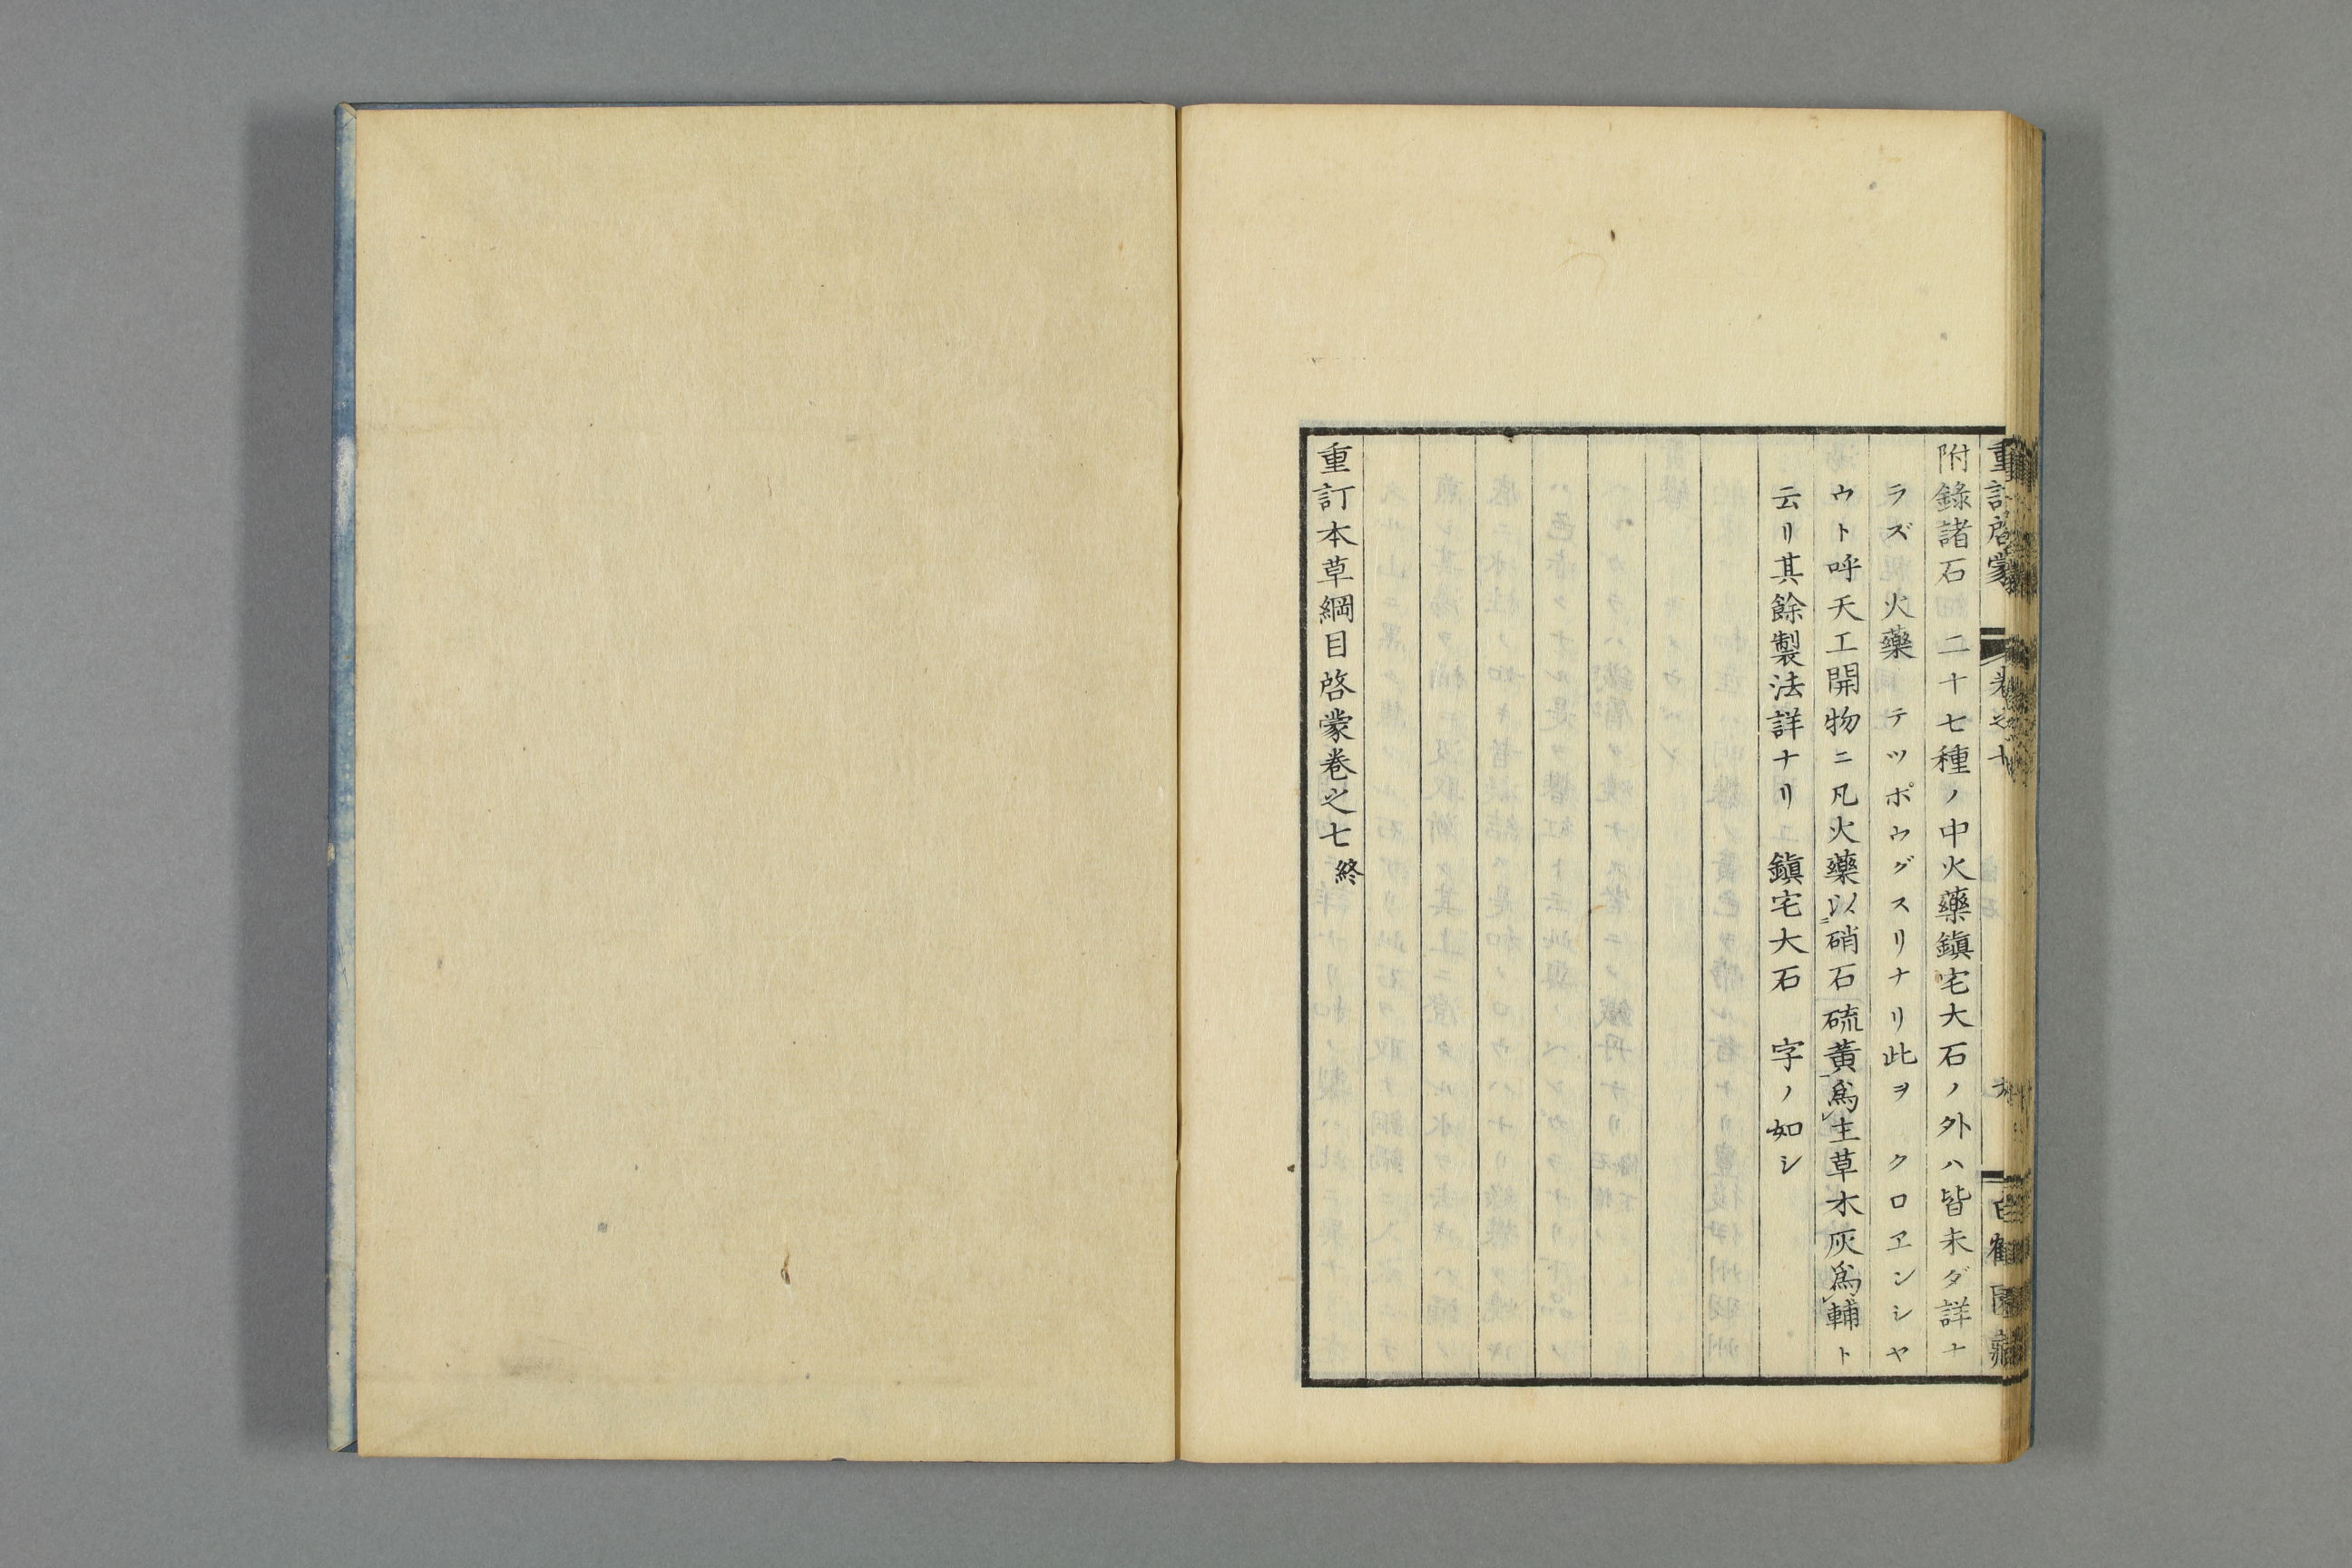 重訂啓蒙 卷之七
附錄諸石 二十七種ノ中火藥鎭宅大石ノ外ハ皆未ダ詳ナ
ラズ 火藥 テツポウグスリナリ此ヲ クロヱンシヤ
ウト呼天工開物ニ凡火藥以硝石硫黃爲主草木灰爲輔ト
云リ其餘製法詳ナリ 鎭宅大石 字ノ如シ
重訂本草綱目啓蒙卷之七 終